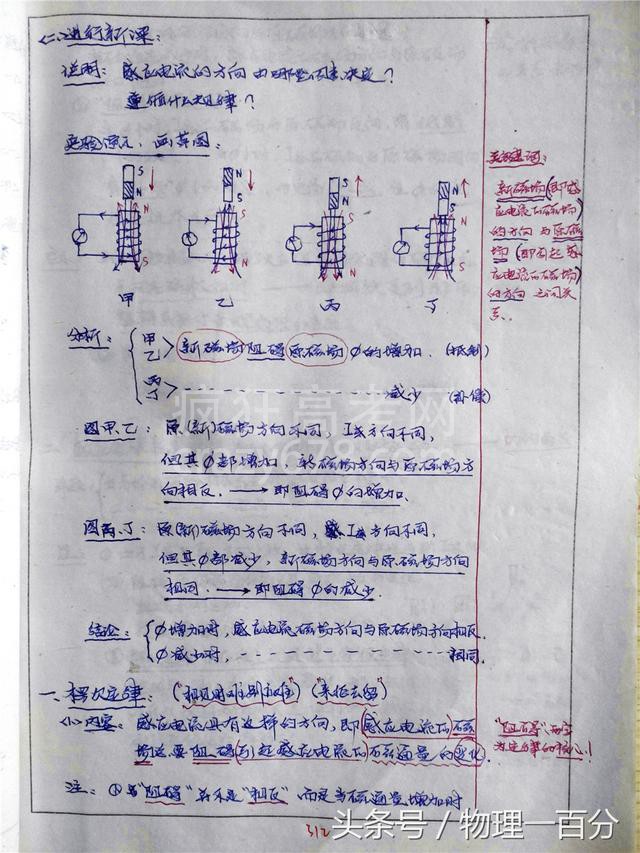 (二)进行新课:
说明: 感应电流的方向由哪些因素决定?
遵循什么规律?
实验演示, 画草图:
关键词:
新磁场(即感
应电流的磁场)
的方向与原磁
场(即引起感
应电流的磁场)
的方向之间关
系.
S N N S
N S S N
S N S N
N S N S
甲 乙 丙 丁
分析: 甲 乙 > 新磁场阻碍原磁场φ的增加. (抵制)
丙 丁 > 减少 (补偿)
图甲、乙: 原(新)磁场方向不同, I感方向不同,
但其φ都增加, 新磁场方向与原磁场方
向相反. → 即阻碍φ的增加.
图丙、丁: 原(新)磁场方向不同, I感方向不同,
但其φ都减少, 新磁场方向与原磁场方向
相同. → 即阻碍φ的减少.
结论: φ增加时, 感应电流磁场方向与原磁场方向相反.
φ减少时, 相同.
一、楞次定律: ("相见时难别亦难") ("来拒去留")
(1)内容: 感应电流具有这样的方向, 即感应电流的磁
场总要阻碍引起感应电流的磁通量的变化.
"阻碍"两字
为定律的核心!
注: ①与"阻碍"并不是"相反", 而是当磁通量增加时
312
疯狂高考网
头条号 / 物理一百分